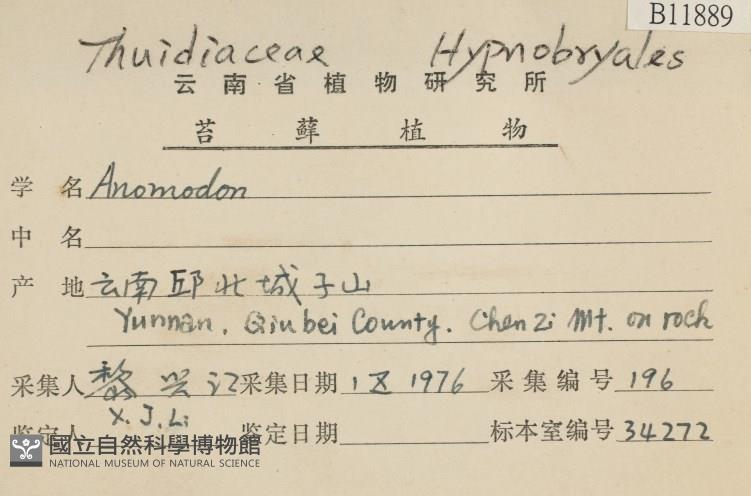 B11889
Thuidiaceae Hypnobryales
云南省植物研究所
苔藓植物
学名 Anomodon
中名
产地 云南邱北城子山
Yunnan, Qiubei County. Chenzi Mt. on rock
采集人 黎兴江 采集日期 1 X 1976 采集编号 196
X. J. Li
鉴定人 鉴定日期 标本室编号 34272
國立自然科學博物館
NATIONAL MUSEUM OF NATURAL SCIENCE